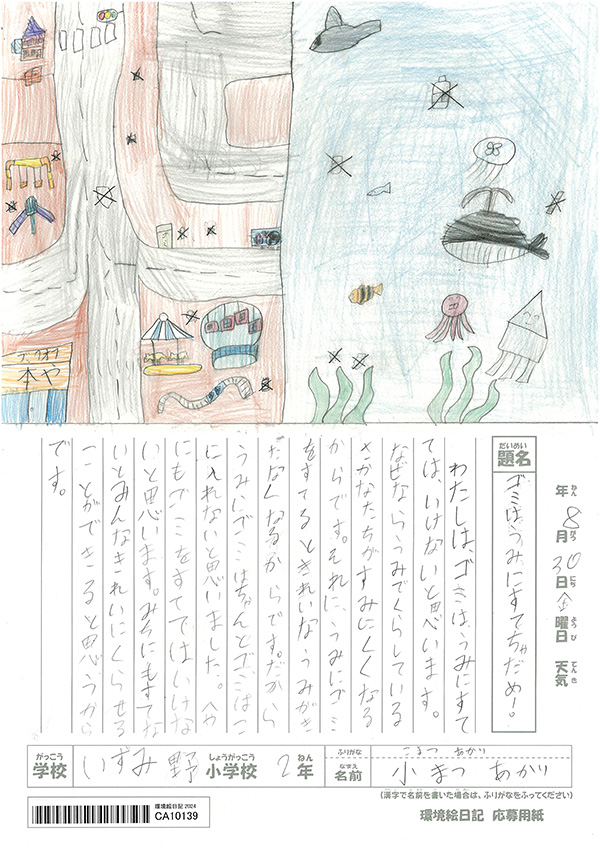 ブックオフ
本や
だいめい
題名
ゴミは、うみにすてちゃだめ!
ねん がつ にち ようび てんき
年 8月30日 金曜日 天気
わたしは、ゴミは、うみにすて
ては、いけないと思います。
なぜなら、うみでくらしている
さかなたちがすみにくくなる
からです。それに、うみにゴミ
をすてるときれいなうみがき
たなくなるからです。だから
うみにゴミはちゃんとゴミばこ
に入れないと思いました。へや
にもゴミをすててはいけな
いと思います。みちにもすてな
いとみんなきれいにくらせる
ことができると思うから
です。
がっこう しょうがっこう ねん
学校 いずみ野 小学校 2年
ふりがな こまつ あかり
なまえ
名前 小まつ あかり
(漢字で名前を書いた場合は、ふりがなをふってください)
環境絵日記 2024
CA10139
環境絵日記 応募用紙